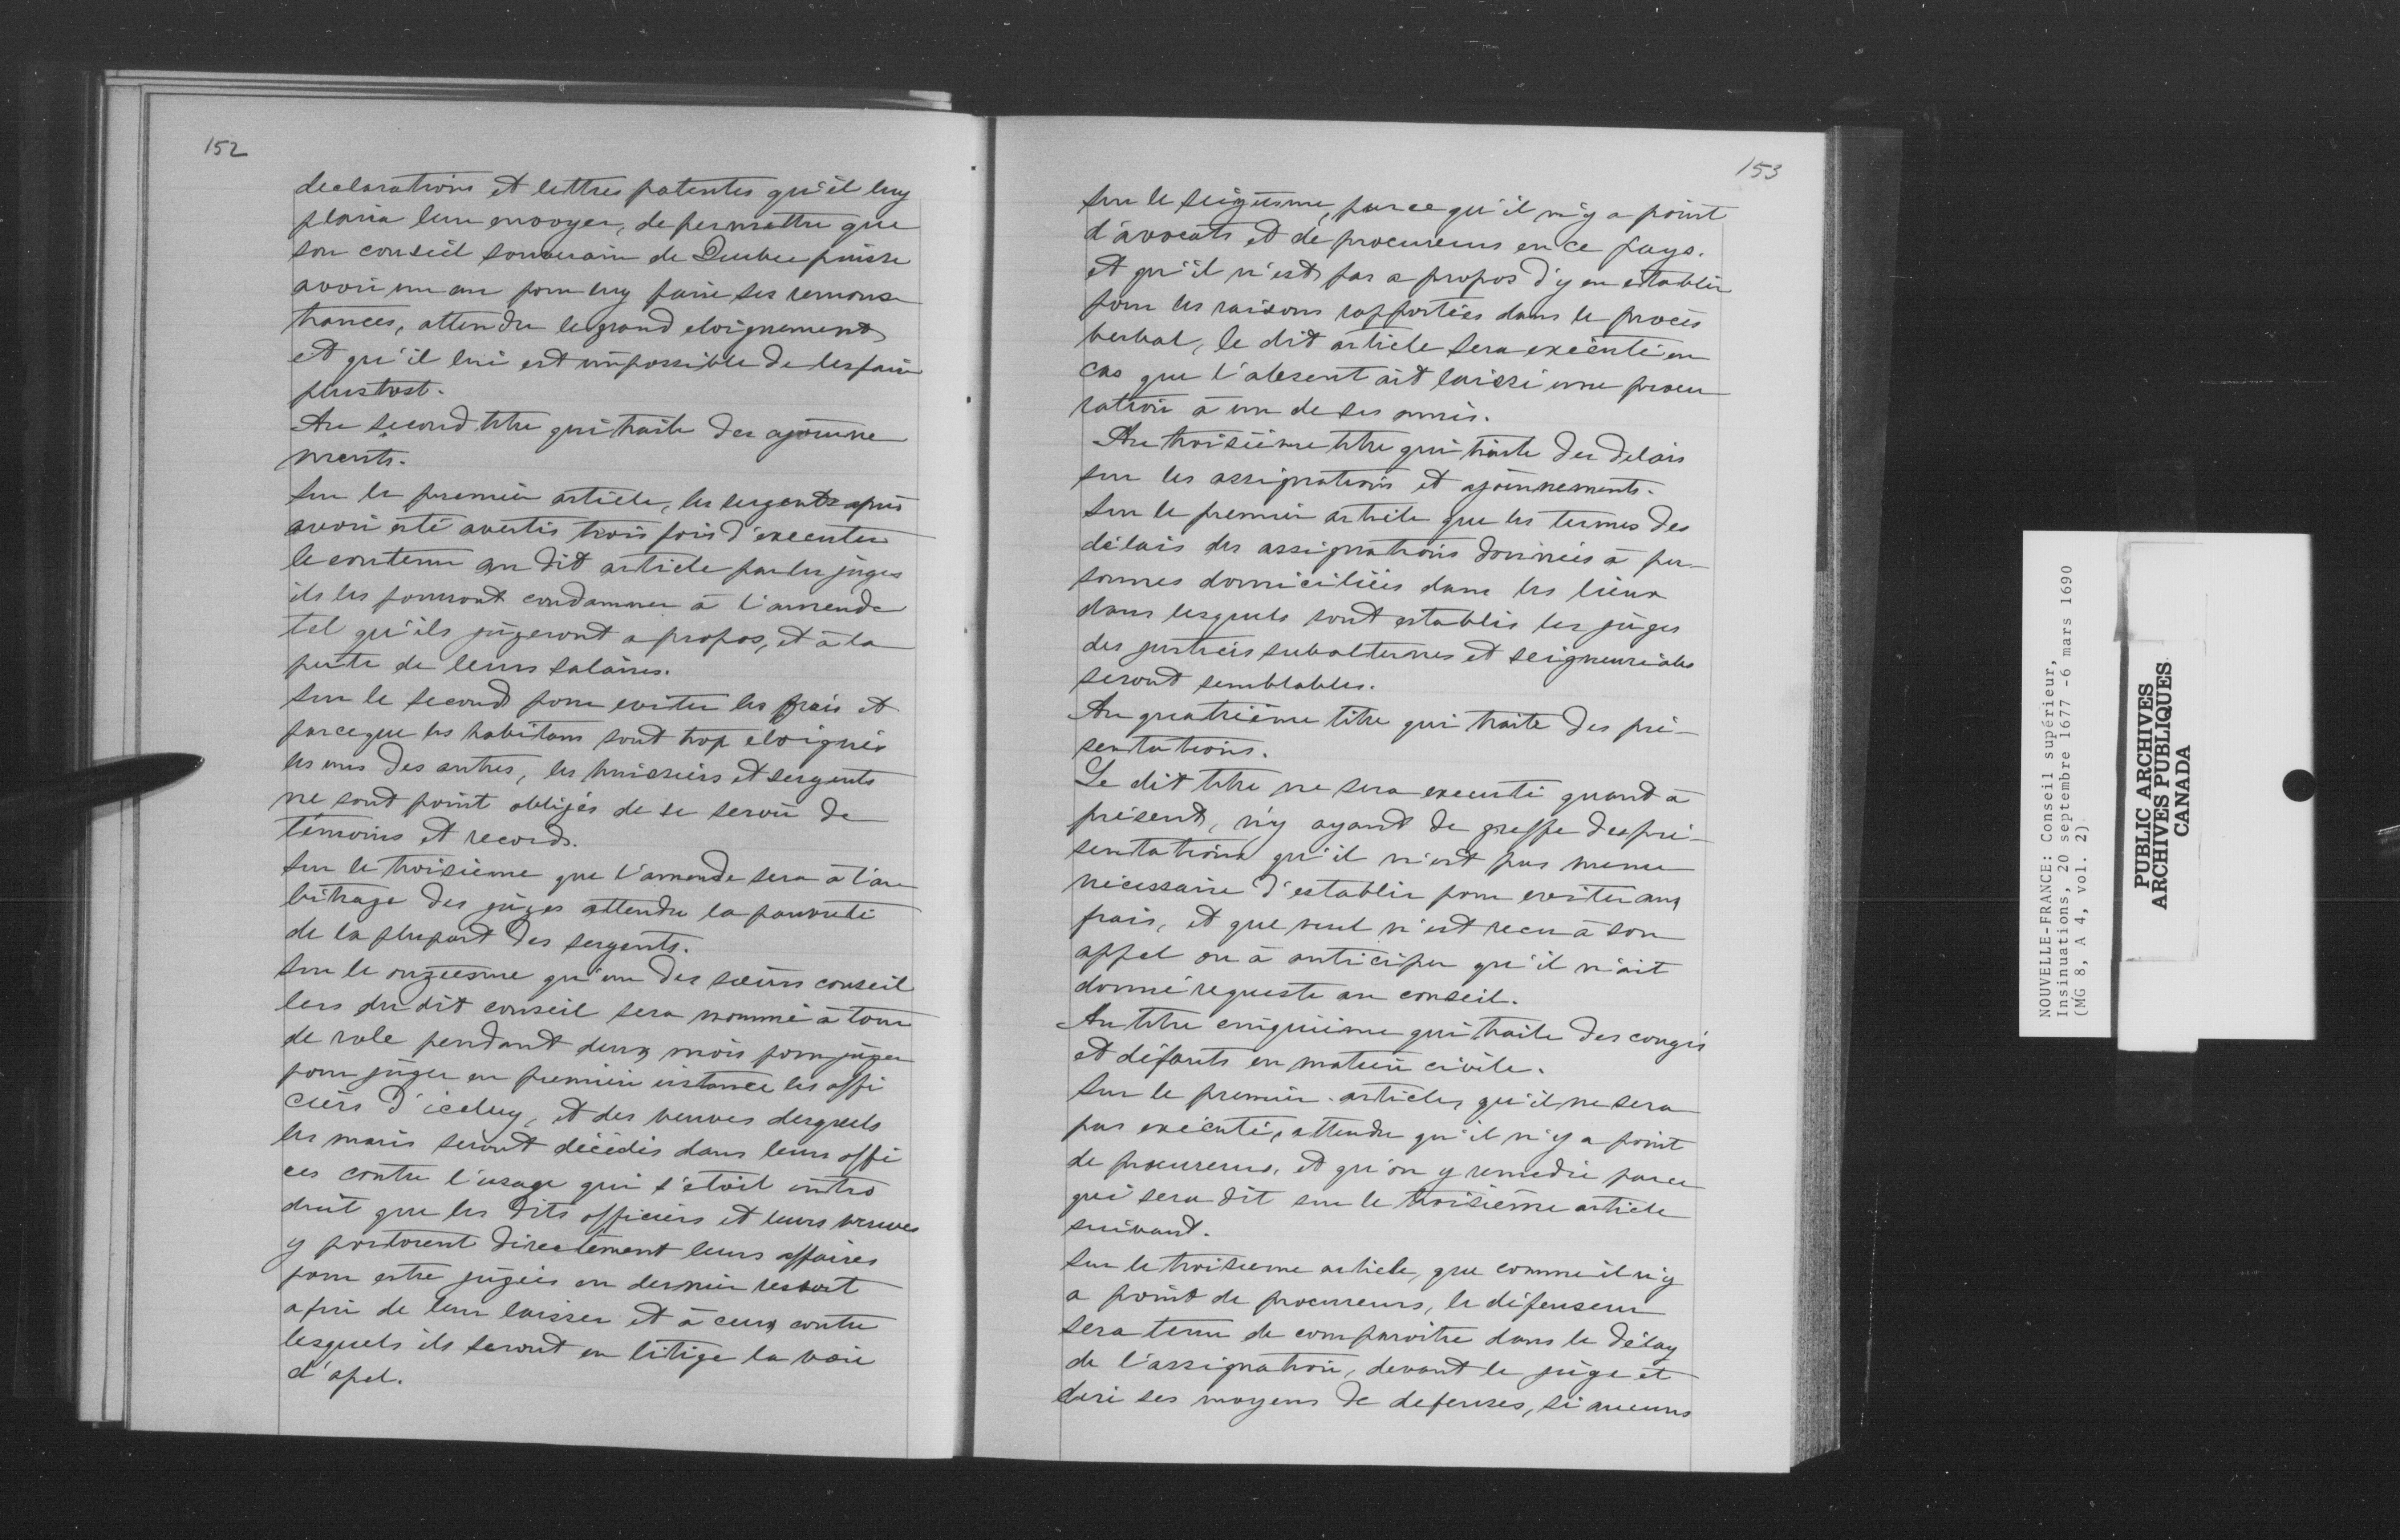 152
declarations et lettres patentes qu'il luy
plaira leur envoyer, de permettre que
son conseil souverain de Quebec puisse
avoir un an pour luy faire ses remons
trances, attendu le grand eloignement
et qu'il lui est impossible de les faire
plustost.
Au second titre qui traite des ajourne
ments.
Sur le premier article, les sergents apres
avoir esté avertis trois fois d'executer
le contenu au dit article par les juges
ils les pourront condamner à l'amende
tel qu'ils jugeront a propos, et à la
perte de leurs salaires.
Sur le second pour eviter les frais et
parceque les habitans sont trop eloignés
les uns des autres, les huissiers et sergents
ne sont point obligés de se servir de
témoins et records.
Sur le troisieme que l'amende sera à l'ar
bitrage des juges attendu la pauvreté
de la plupart des sergents.
Sur le onziesme qu'un des sieurs conseil
lers du dit conseil sera nommé à tour
de role pendant deux mois pour juger
pour juger en premiere instance les offi
ciers d'iceluy, et des veuves desquels
les maris seront décédés dans leurs offi
ces contre l'usage qui s'etoit intro
duit que les dits officiers et leurs veuves
y portorent directement leurs affaires
pour estre jugées en dernier ressort
afin de leur laisser et à ceux contre
lesquels ils seront en litige la voie
d'apel.
153
Sur le seiziesme, parce qu'il n'y a point
d'avocats et de procureurs en ce pays.
et qu'il n'est pas a propos d'y en establir
pour les raisons rapportées dans le procès
verbal, le dit article sera exécuté en
cas que l'absent ait laissé une procu
ration à un de ses amis.
Au troisième titre qui traite des delais
sur les assignations et ajournements.
Sur le premier article que les termes des
délais des assignations données à per-
sonnes domiciliées dans les lieux
dans lesquels sont establis les juges
des justices subalternes et seigneuriales
seront semblables.
Au quatrième titre qui traite des pré-
sentations.
Le dit titre ne sera executé quant à
présent, n'y ayant de greffe des pré-
sentations qu'il n'est pas meme
nécessaire d'establir pour eviter aux
frais, et que nul n'est recu à son
appel ou à anticiper qu'il n'ait
donné requeste au conseil.
Au titre cinquième qui traite des congés
et défauts en matière civile.
Sur le premier article, qu'il ne sera
pas exécuté, attendu qu'il n'y a point
de procureurs, et qu'on y remedie parce
qui sera dit sur le troisième article
suivant.
Sur le troisieme article, que comme il n'y
a point de procureurs, le défenseur
sera tenu de comparoitre dans le délay
de l'assignation, devant le juge et
ses moyens de defenses, si aucuns
NOUVELLE-FRANCE: Conseil supérieur,
Insinuations, 20 septembre 1677 -6 mars 1690
(MG 8, A 4, vol. 2)
PUBLIC ARCHIVES
ARCHIVES PUBLIQUES
CANADA